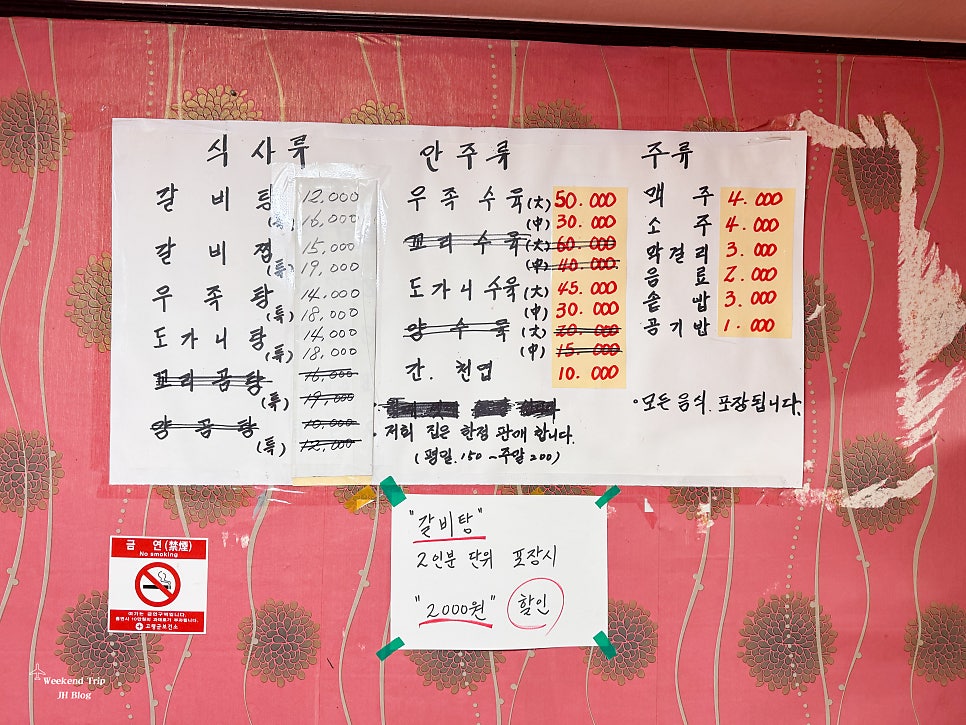 식사류
갈비탕 12,000
(특) 16,000
갈비찜 15,000
(특) 19,000
우족탕 14,000
(특) 18,000
도가니탕 14,000
(특) 18,000
꼬리곰탕 16,000
(특) 19,000
양곰탕 10,000
(특) 12,000
안주류
우족수육(大) 50.000
(中) 30.000
꼬리수육(大) 60.000
(中) 40.000
도가니수육(大) 45.000
(中) 30.000
양수육(大) 20.000
(中) 15.000
간. 천엽 10.000
· 저희 집은 한정 판매 합니다.
(평일.150 ~주말200)
주류
맥주 4.000
소주 4.000
막걸리 3.000
음료 2.000
솥밥 3.000
공기밥 1.000
·모든 음식. 포장됩니다.
"갈비탕"
2인분 단위 포장시
"2000원" 할인
금 연(禁煙)
No smoking
여기는 금연구역입니다.
흡연시 10만원의 과태료가 부과됩니다.
고령군보건소
Weekend Trip
JH Blog